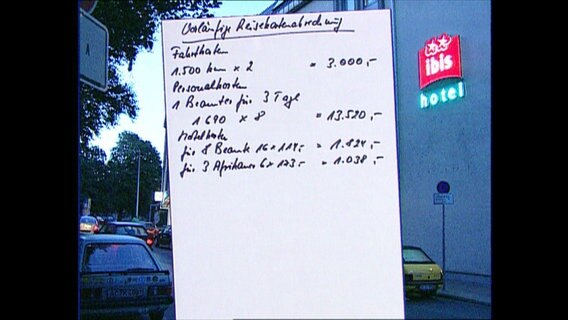 Vorläufige Reisekostenabrechnung
Fahrtkosten
1.500 km x 2 = 3.000,-
Personalkosten
1 Beamter für 3 Tage
1 690 x 8 = 13.520,-
Hotelkosten
für 8 Beamte 16 x 114,- = 1.824,-
für 3 Afrikaner 6 x 173,- = 1.038,-
ibis
hotel
A